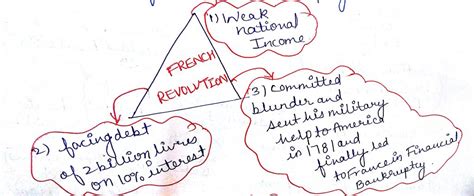 1) Weak
national
Income
FRENCH
REVOLUTION
2) facing debt
of 2 billion livres
on 10% interest
3) Committed
blunder and
sent his military
help to America
in 1781 and
finally led
to France in Financial
Bankruptcy.